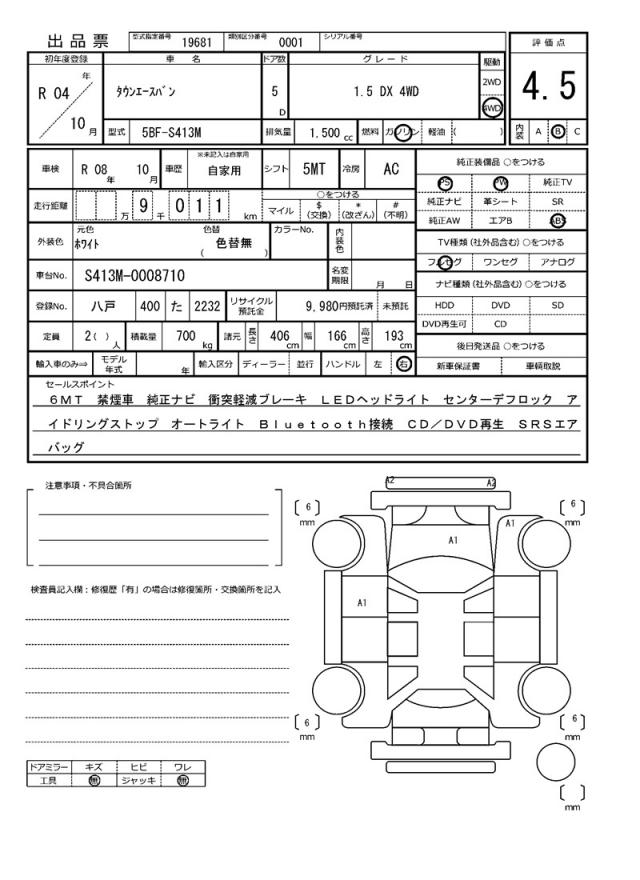 出品票 型式指定番号 19681 類別区分番号 0001 シリアル番号
初年度登録 車名 ドア数 グレード 駆動 評価点
R 04 年 10 月 タウンエースバン 5 D 1.5 DX 4WD 2WD 4WD 4.5
型式 5BF-S413M 排気量 1.500 cc 燃料 ガソリン 軽油 ( ) 内装 A B C
車検 R 08 年 10 月 車歴 ※未記入は自家用 自家用 シフト 5MT 冷房 AC 純正装備品 ○をつける
PS PW 純正TV
走行距離 万 9 千 0 1 1 km ○をつける マイル $ (交換) * (改ざん) # (不明) 純正ナビ 革シート SR
純正AW エアB ABS
外装色 元色 ホワイト 色替 ( 色替無 ) カラーNo. 内装色 TV種類 (社外品含む) ○をつける
フルセグ ワンセグ アナログ
車台No. S413M-0008710 名変期限 月 日 ナビ種類 (社外品含む) ○をつける
登録No. 八戸 400 た 2232 リサイクル預託金 9,980円預託済 未預託 HDD DVD SD
DVD再生可 CD
定員 2( ) 人 積載量 700 kg 諸元 長さ 406 cm 幅 166 cm 高さ 193 cm 後日発送品 ○をつける
輸入車のみ⇒ モデル年式 年 輸入区分 ディーラー 並行 ハンドル 左 右 新車保証書 車輌取説
セールスポイント
6MT 禁煙車 純正ナビ 衝突軽減ブレーキ LEDヘッドライト センターデフロック ア
イドリングストップ オートライト Bluetooth接続 CD/DVD再生 SRSエア
バッグ
注意事項・不具合箇所
A2 A2
6 mm 6 mm
A1
A1
検査員記入欄：修復歴「有」の場合は修復箇所・交換箇所を記入
A1
6 mm 6 mm
ドアミラー キズ ヒビ ワレ
工具 無 ジャッキ 無
mm